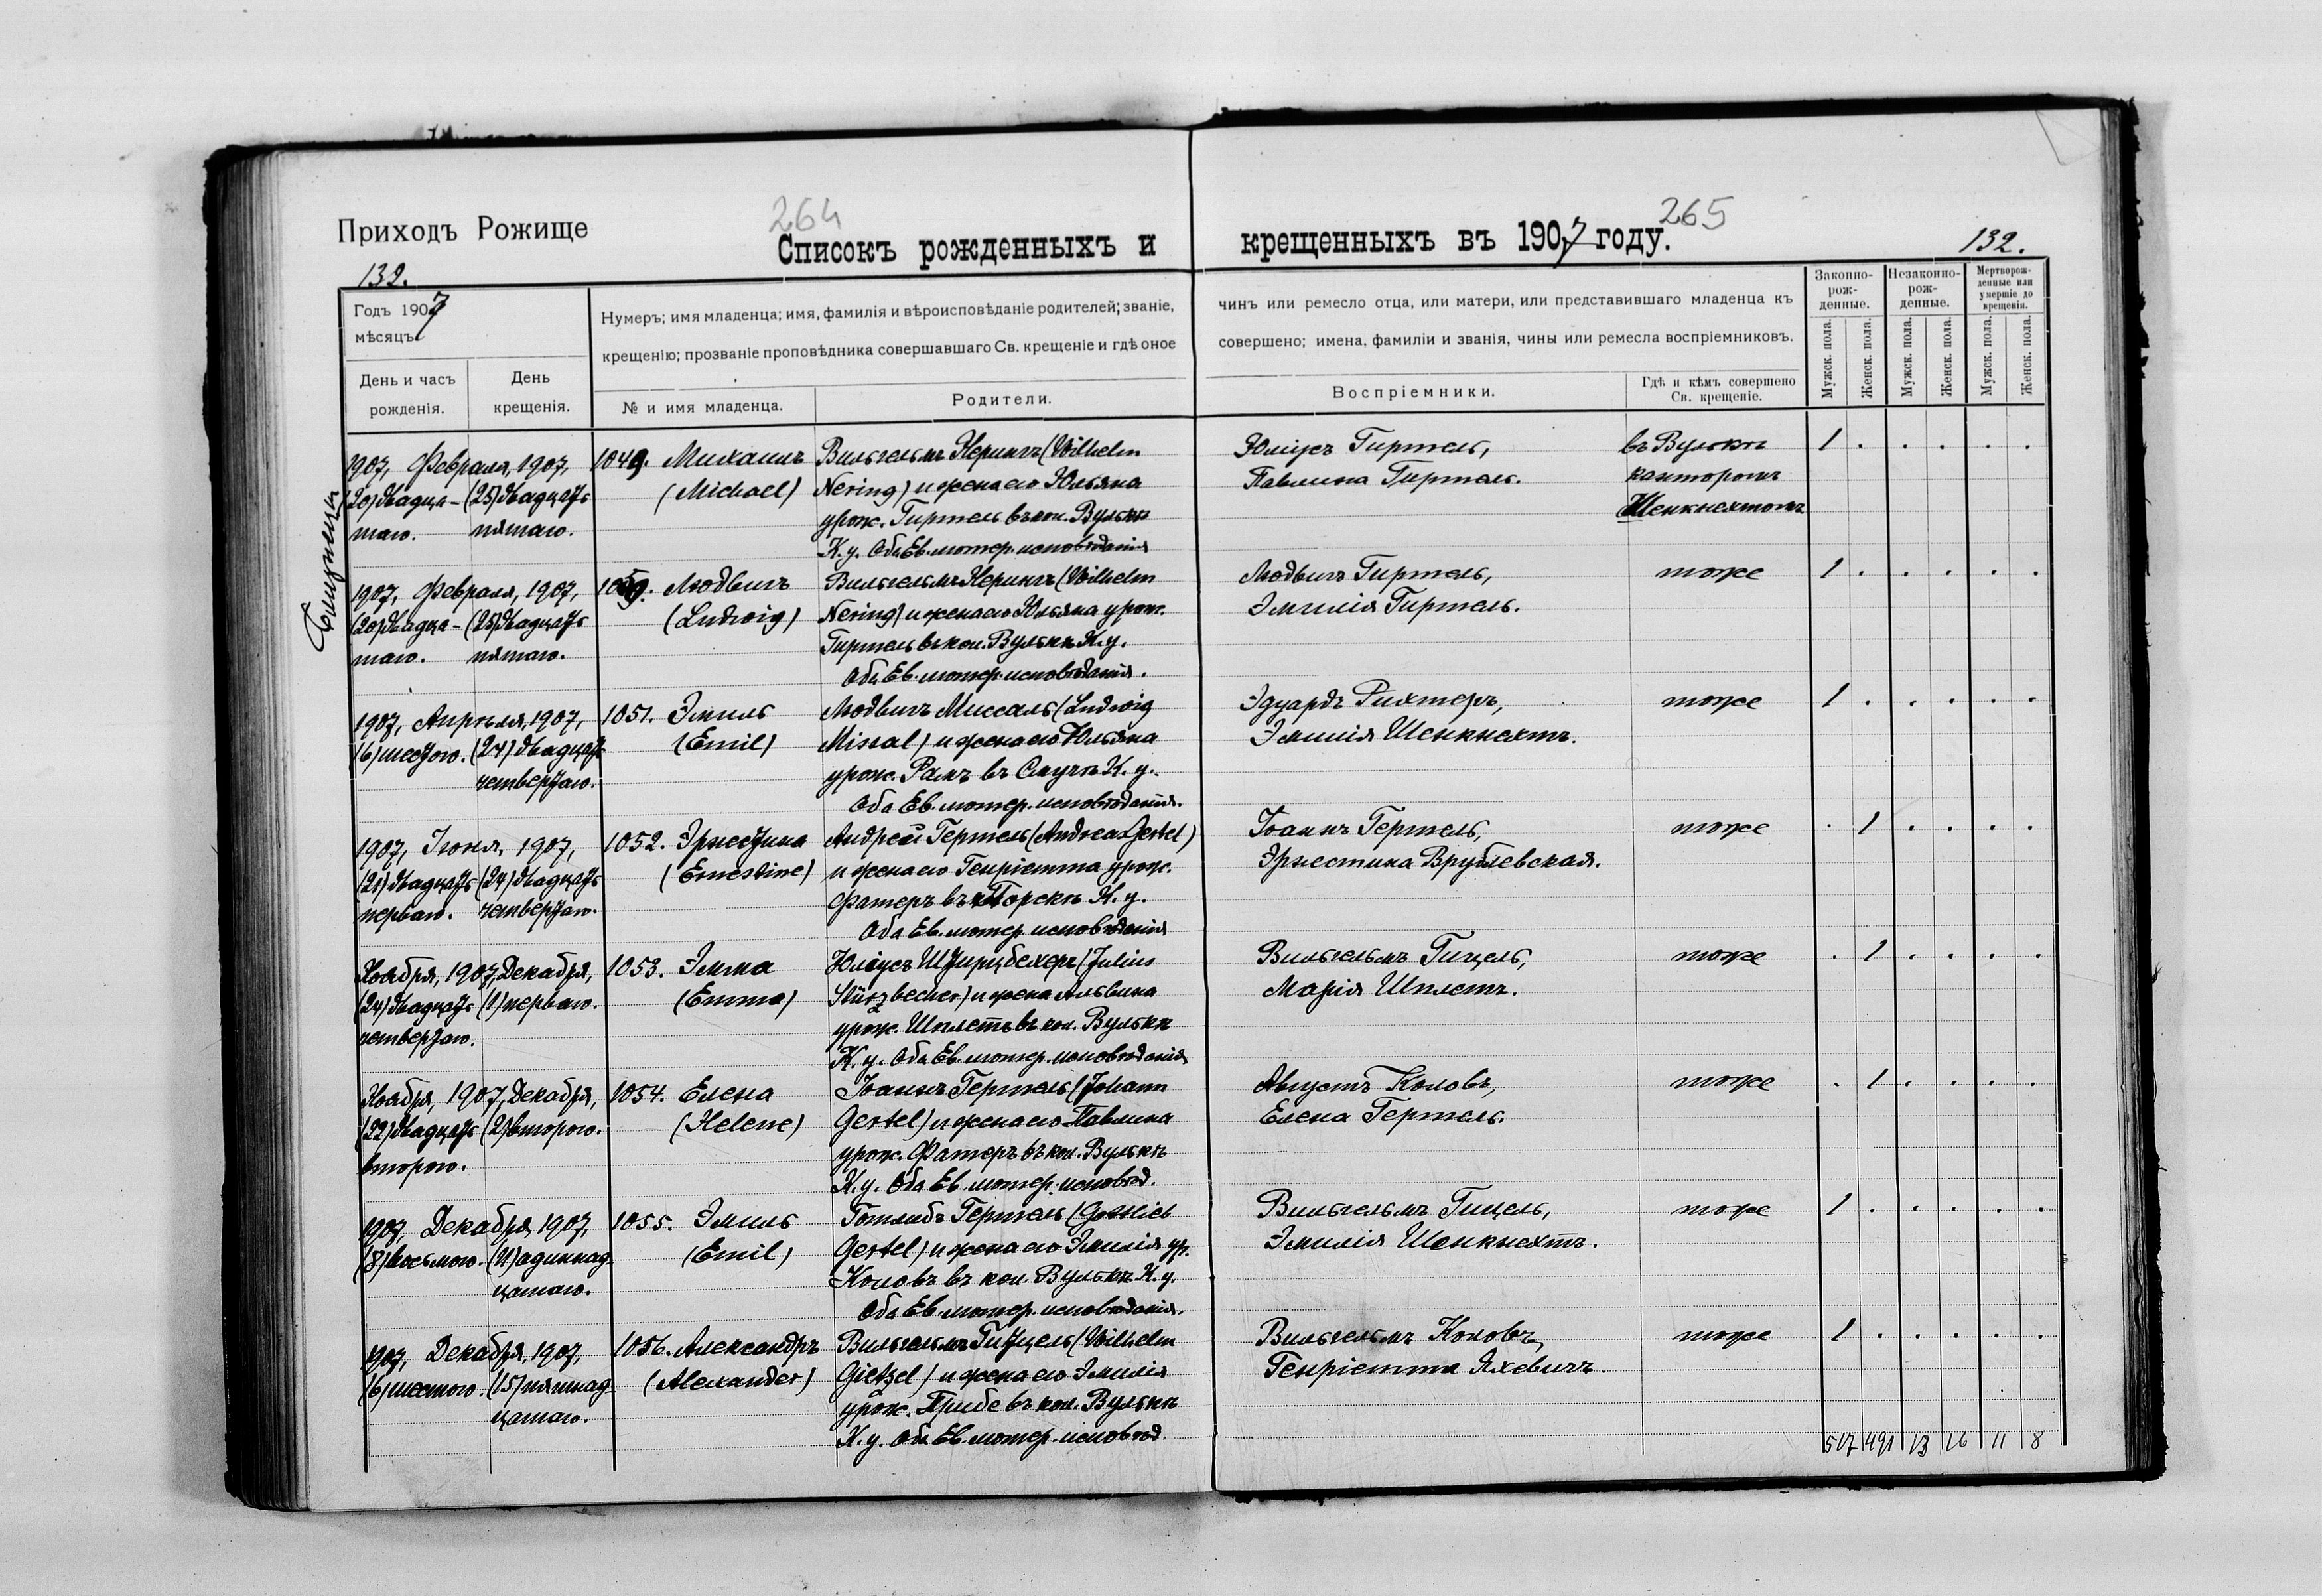 264
265
Приходъ Рожище
Списокъ рожденныхъ и
крещенныхъ въ 1907 году.
132.
132.
Годъ 1907
мѣсяцъ
День и часъ
рожденія.
День
крещенія.
Нумеръ; имя младенца; имя, фамилія и вѣроисповѣданіе родителей; званіе,
крещенію; прозваніе проповѣдника совершавшаго Св. крещеніе и гдѣ оное
№ и имя младенца.
Родители.
чинъ или ремесло отца, или матери, или представившаго младенца къ
совершено; имена, фамиліи и званія, чины или ремесла воспріемниковъ.
Воспріемники.
Гдѣ и кѣмъ совершено
Св. крещеніе.
Законно-
рож-
денные.
Незаконно-
рож-
денные.
Мертворож-
денные или
умершіе до
крещенія.
Мужск. пола.
Женск. пола.
Мужск. пола.
Женск. пола.
Мужск. пола.
Женск. пола.
Близнецы
1907, Февраля, 1907, 1049. Михаилъ Вильгельмъ Нерингъ (Wilhelm Юліусъ Гиртель, въ Вулькѣ 1 . . . . .
(20) двадца- (25) двадцать (Michael) Nering) и жена его Юльяна Павлина Гиртель. канторомъ
таго. пятаго. урож. Гиртель въ кол. Вулькѣ Шенкнехтомъ
К. у. Оба Ев. лютер. исповѣданія
1907, Февраля, 1907, Людвигъ Вильгельмъ Нерингъ (Wilhelm Людвигъ Гиртель, тоже 1 . . . . .
(20) двадца- (25) двадцать (Ludwig) Nering) и жена его Юльяна урож. Эмилія Гиртель.
таго. пятаго. Гиртель въ кол. Вулькѣ К. у.
Оба Ев. лютер. исповѣданія.
1907, Апрѣля, 1907, 1051. Эмиль Людвигъ Миссаль (Ludwig Эдуардъ Рихтеръ, тоже 1 . . . . .
(6) шестого. (24) двадцать (Emil) Missal) и жена его Юльяна Эмилія Шенкнехтъ.
четвертаго. урож. Рамъ въ К. у.
Оба Ев. лютер. исповѣданія.
1907, Іюня, 1907, 1052. Эрнестина Андрей Гертель (Andreas Gertel) Іоаннъ Гертель, тоже . 1 . . . .
(21) двадцать (24) двадцать (Ernestine) и жена его Генріетта урож. Эрнестина Врублевская.
перваго. четвертаго. Фатеръ въ К. у.
Оба Ев. лютер. исповѣданія
Ноября, 1907, Декабря, 1053. Эмма Юліусъ Штирцбехеръ (Julius Вильгельмъ Гицель, тоже . 1 . . . .
(24) двадцать (1) перваго. (Emma) Stürzbecher) и жена Альвина Марія Шплетъ.
четвертаго. урож. Шплетъ въ кол. Вулькѣ
К. у. Оба Ев. лютер. исповѣданія
Ноября, 1907, Декабря, 1054. Елена Іоаннъ Гертель (Johann Августъ Коловъ, тоже . 1 . . . .
(22) двадцать (2) второго. (Helene) Gertel) и жена его Павлина Елена Гертель.
второго. урож. Фатеръ въ кол. Вулькѣ
К. у. Оба Ев. лютер. исповѣд.
1907, Декабря, 1907, 1055. Эмиль Готлибъ Гертель (Gottlieb Вильгельмъ Гицель, тоже 1 . . . . .
(8) восьмого. (11) адиннад- (Emil) Gertel) и жена его Эмилія ур. Эмилія Шенкнехтъ.
цатаго. Коловъ въ кол. Вулькѣ К. у.
Оба Ев. лютер. исповѣданія.
1907, Декабря, 1907, 1056. Александръ Вильгельмъ Гитцель (Wilhelm Вильгельмъ Коловъ, тоже 1 . . . . .
(6) шестого. (15) пятнад- (Alexander) Gietzel) и жена его Эмилія Генріетта Яхевичъ.
цатаго. урож. Прибе въ кол. Вулькѣ
К. у. Оба Ев. лютер. исповѣд.
517 491 13 16 11 8